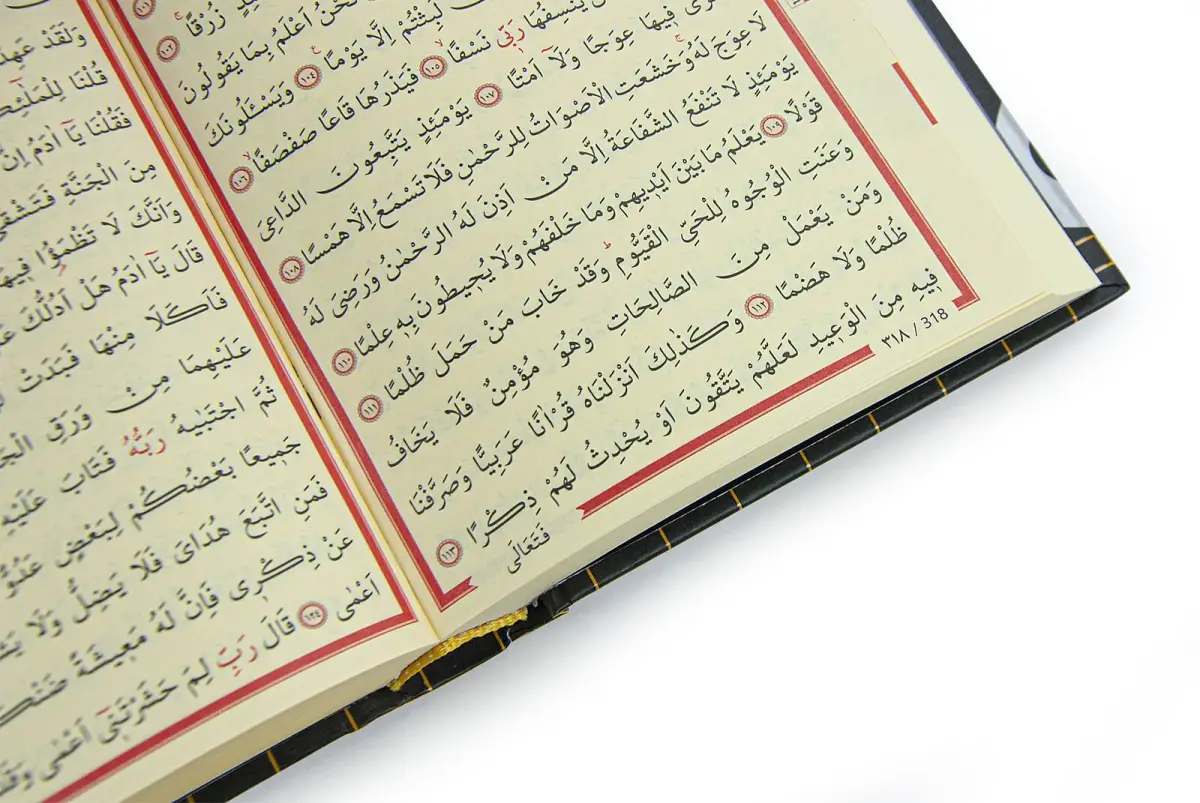 ١٠١
زُرْقًاۚ ﴿١٠٢﴾
نَحْنُ اَعْلَمُ بِمَا يَقُولُونَ
لَبِثْتُمْ اِلَّا يَوْمًاۚ ﴿١٠٤﴾ وَيَسْـَٔلُونَكَ
يَنْسِفُهَا رَبّ۪ى نَسْفًاۙ ﴿١٠٥﴾ فَيَذَرُهَا قَاعًا صَفْصَفًاۙ ﴿١٠٦﴾
ف۪يهَا عِوَجًا وَلَٓا اَمْتًا ﴿١٠٧﴾ يَوْمَئِذٍ يَتَّبِعُونَ الدَّاعِىَ
لَا عِوَجَ لَهُۚ وَخَشَعَتِ الْاَصْوَاتُ لِلرَّحْمٰنِ فَلَا تَسْمَعُ اِلَّا هَمْسًا ﴿١٠٨﴾
يَوْمَئِذٍ لَا تَنْفَعُ الشَّفَاعَةُ اِلَّا مَنْ اَذِنَ لَهُ الرَّحْمٰنُ وَرَضِىَ لَهُ
قَوْلًا ﴿١٠٩﴾ يَعْلَمُ مَا بَيْنَ اَيْد۪يهِمْ وَمَا خَلْفَهُمْ وَلَا يُح۪يطُونَ بِه۪ عِلْمًا ﴿١١٠﴾
وَعَنَتِ الْوُجُوهُ لِلْحَىِّ الْقَيُّومِۜ وَقَدْ خَابَ مَنْ حَمَلَ ظُلْمًا ﴿١١١﴾
وَمَنْ يَعْمَلْ مِنَ الصَّالِحَاتِ وَهُوَ مُؤْمِنٌ فَلَا يَخَافُ
ظُلْمًا وَلَا هَضْمًا ﴿١١٢﴾ وَكَذٰلِكَ اَنْزَلْنَاهُ قُرْاٰنًا عَرَبِيًّا وَصَرَّفْنَا
ف۪يهِ مِنَ الْوَع۪يدِ لَعَلَّهُمْ يَتَّقُونَ اَوْ يُحْدِثُ لَهُمْ ذِكْرًا ﴿١١٣﴾
فَتَعَالَى
٣١٨ / 318
وَلَقَدْ عَهِدْ
قُلْنَا لِلْمَلٰٓئِكَ
فَقُلْنَا يَٓا اٰدَمُ اِنَّ
مِنَ الْجَنَّةِ فَتَشْقٰى
وَاَنَّكَ لَا تَظْمَؤُ۬ا ف۪يهَا
قَالَ يَٓا اٰدَمُ هَلْ اَدُلُّكَ
فَاَكَلَا مِنْهَا فَبَدَتْ
عَلَيْهِمَا مِنْ وَرَقِ
ثُمَّ اجْتَبٰيهُ رَبُّهُ فَتَابَ عَلَيْهِ
جَم۪يعًا بَعْضُكُمْ لِبَعْضٍ عَدُوٌّ
فَمَنِ اتَّبَعَ هُدَاىَ فَلَا يَضِلُّ وَلَا
عَنْ ذِكْر۪ى فَاِنَّ لَهُ مَع۪يشَةً ضَنْكًا
اَعْمٰى ﴿١٢٤﴾ قَالَ رَبِّ لِمَ حَشَرْتَن۪ٓى اَعْمٰى